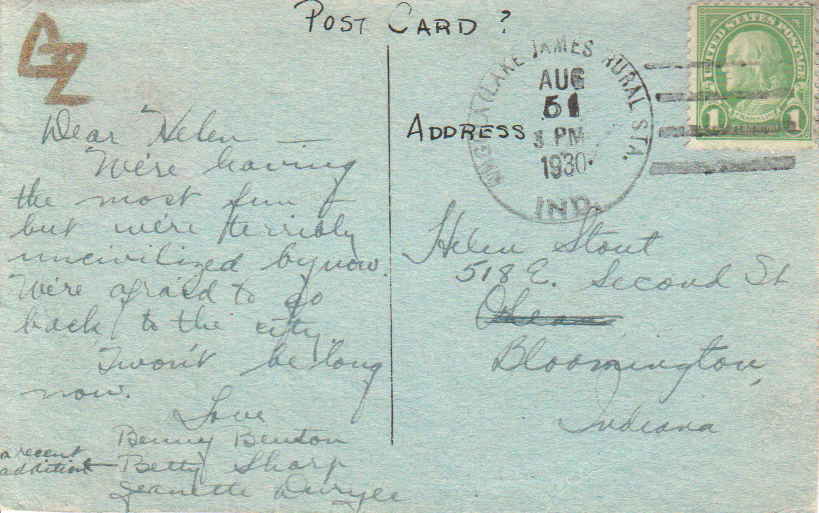 POST CARD ?
AZ
LAKE JAMES RURAL STA.
AUG
51
3 PM
1930
IND.
UNITED STATES POSTAGE
1 1
ADDRESS
Dear Helen —
We're having
the most fun –
but we're terribly
uncivilized by now.
We're afraid to go
back to the city.
'Twon't be long
now.
Love
Benny Benton
a recent
addition— Betty Sharp
Jeanette Duryee
Helen Stout
518 E. Second St
Bloomington,
Indiana